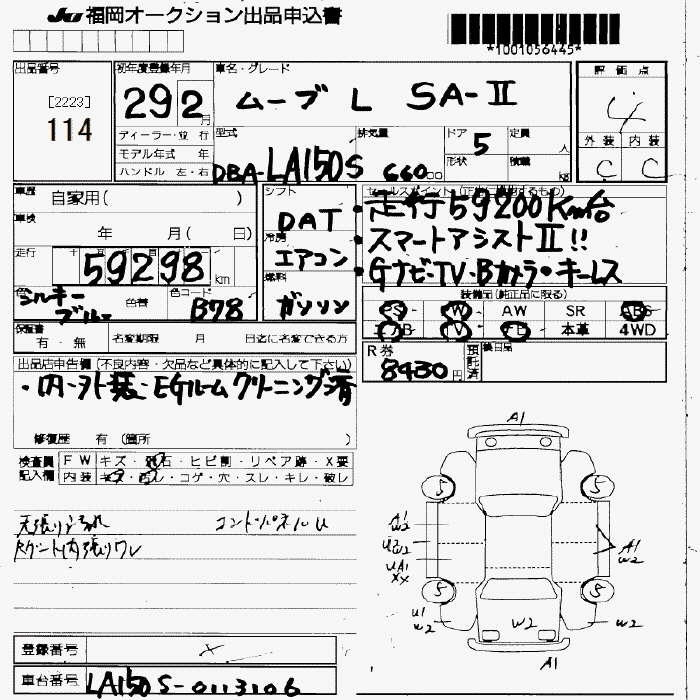 JU 福岡オークション出品申込書
*1001056445*
出品番号
[2223]
114
初年度登録年月
29 2月
車名・グレード
ムーブ L SA-II
評価点
4
外装 内装
C C
ディーラー・並行
モデル年式 年
ハンドル 左・右
型式
DBA-LA150S
排気量
660cc
ドア 5
形状
定員 人
積載 kg
車歴 自家用( )
車検 年 月( 日)
走行 59298 km
色 シルキーブルー
色替
色コード B78
シフト DAT
冷房 エアコン
燃料 ガソリン
セールスポイント(正確に記載するもの)
・走行59200Km台
・スマートアシストII!!
・Gナビ・TV・Bカメラ・キーレス
装備品(純正品に限る)
PS PW AW SR ABS
エアB TV ナビ 本革 4WD
保証書 有・無
名変期限 月 日迄に名変できる方
R券 8430円
預託済
後日品
出品店申告欄(不良内容・欠品など具体的に記入して下さい)
・内・外装・EGルームクリーニング済
修復歴 有(箇所 )
検査員記入欄
FW キズ・飛石・ヒビ割・リペア跡・X要
内装 キズ・汚レ・コゲ・穴・スレ・キレ・破レ
天張り汚れ コントパネルU
Rゲート内張りワレ
A1
5 5
A1 W2
U2 W2
UA1 XX
A1 W2
5 5
U1 W2
W2
W2
A1
登録番号 ×
車台番号 LA150S-0113106